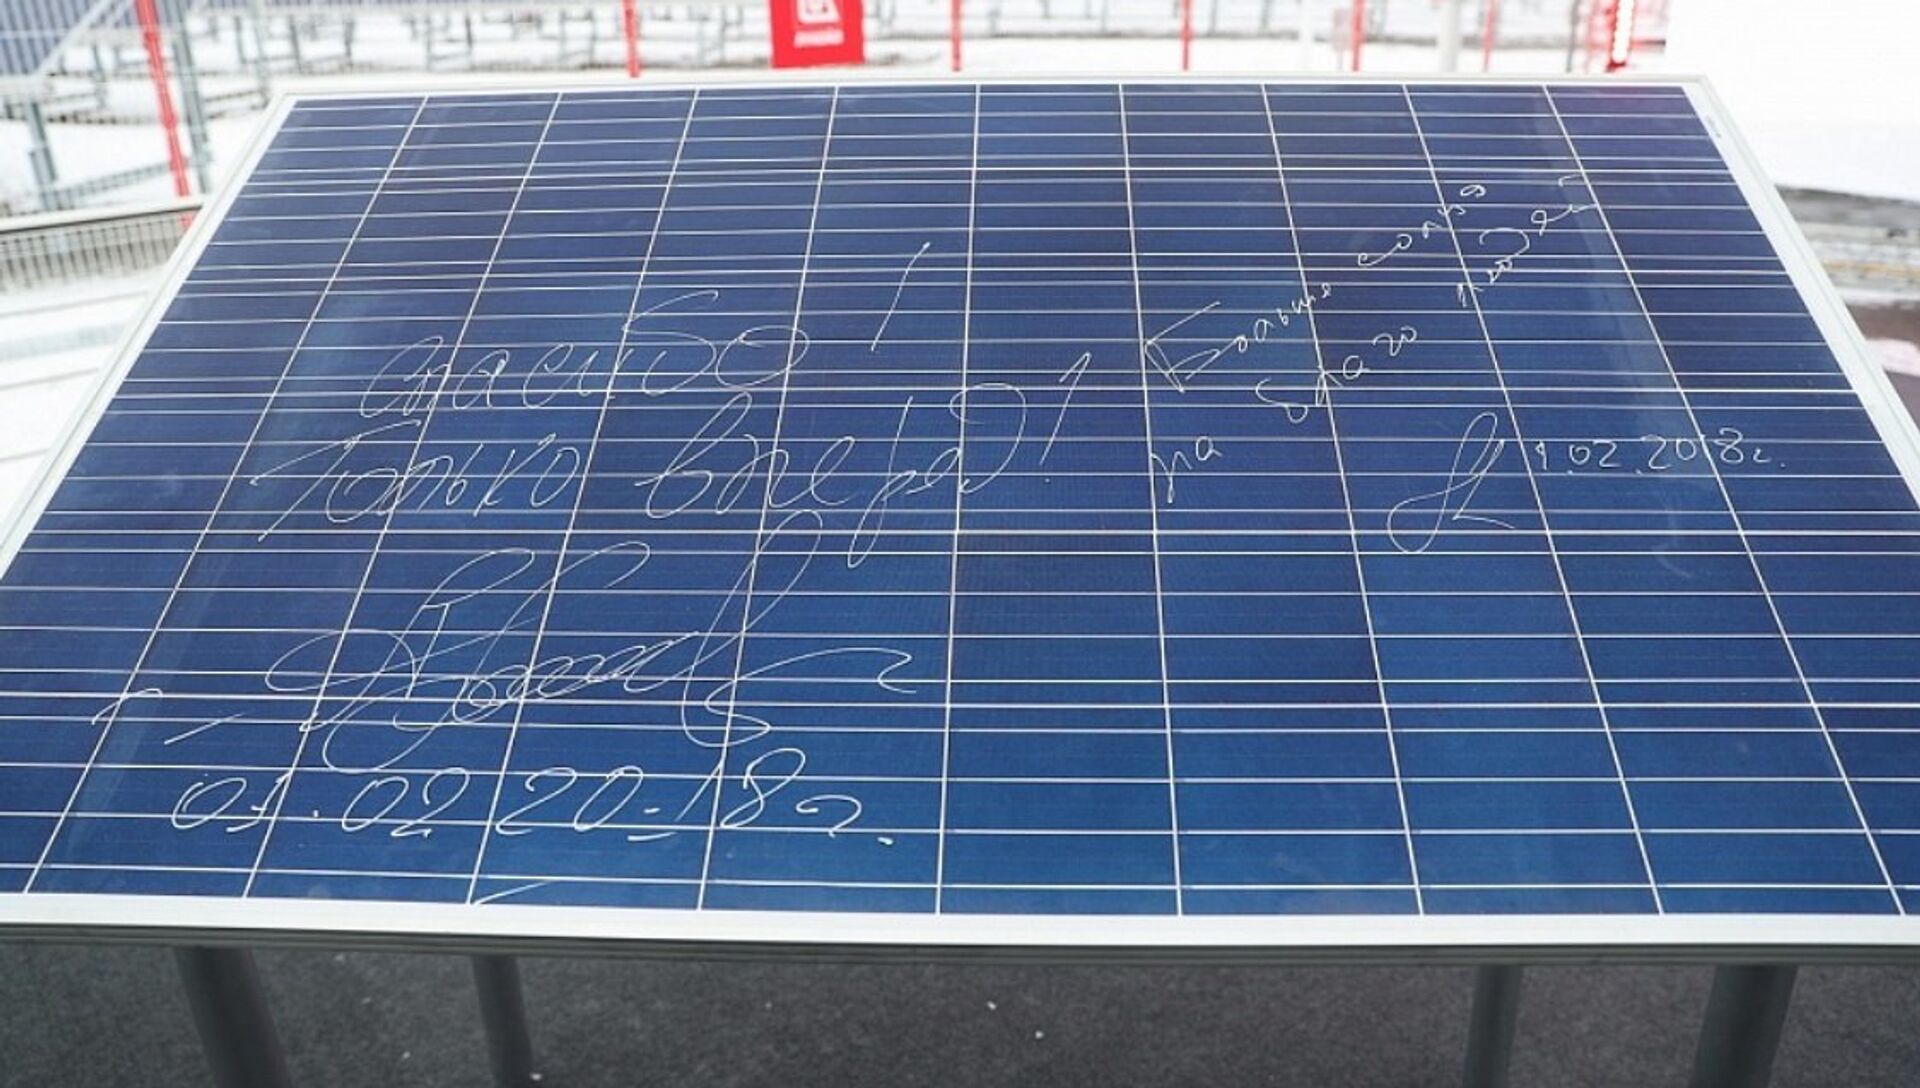 спасибо!
Только вперёд!
01.02.2018г.
Больше солнца
на благо людей
1.02.2018г.